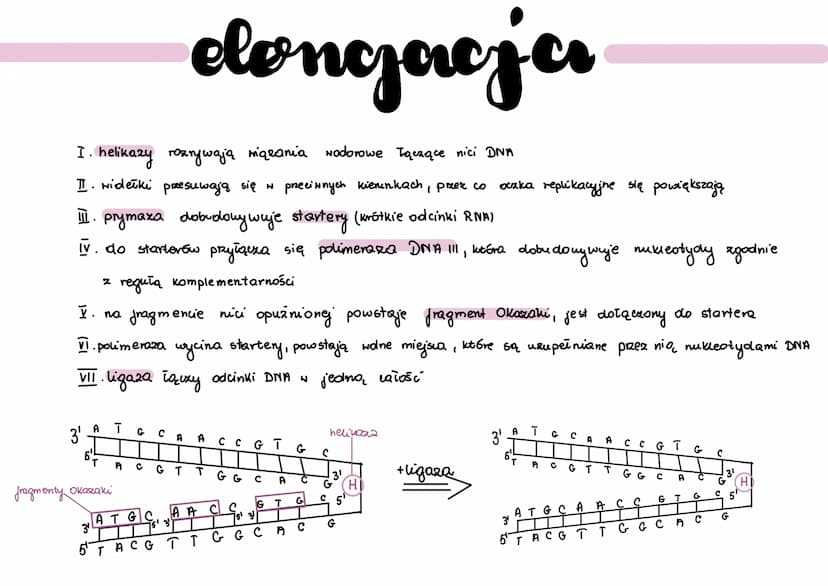 elongacja
I. helikazy rozrywają wiązania wodorowe łączące nici DNA
II. widełki przesuwają się w przeciwnych kierunkach, przez co oczka replikacyjne się powiększają
III. prymaza dobudowywuje startery (krótkie odcinki RNA)
IV. do starterów przyłącza się polimeraza DNA III, która dobudowywuje nukleotydy zgodnie
z regułą komplementarności
V. na fragmencie nici opuźnionej powstaje fragment Okazaki, jest dołączony do startera
VI. polimeraza wycina startery, powstają wolne miejsca, które są uzupełniane przez nią nukleotydami DNA
VII. ligaza łączy odcinki DNA w jedną całość
3' A T G C A A C C G T G C
helikaza
5' T A C G T T G G C A C G 3'
H
fragmenty Okazaki
3' A T G C 5' 3' A A C C 5' 3' G T G C 5'
5' T A C G T T G G C A C G
+ligaza
3' A T G C A A C C G T G C
5' T A C G T T G G C A C G 3'
H
3' A T G C A A C C G T G C 5'
5' T A C G T T G G C A C G